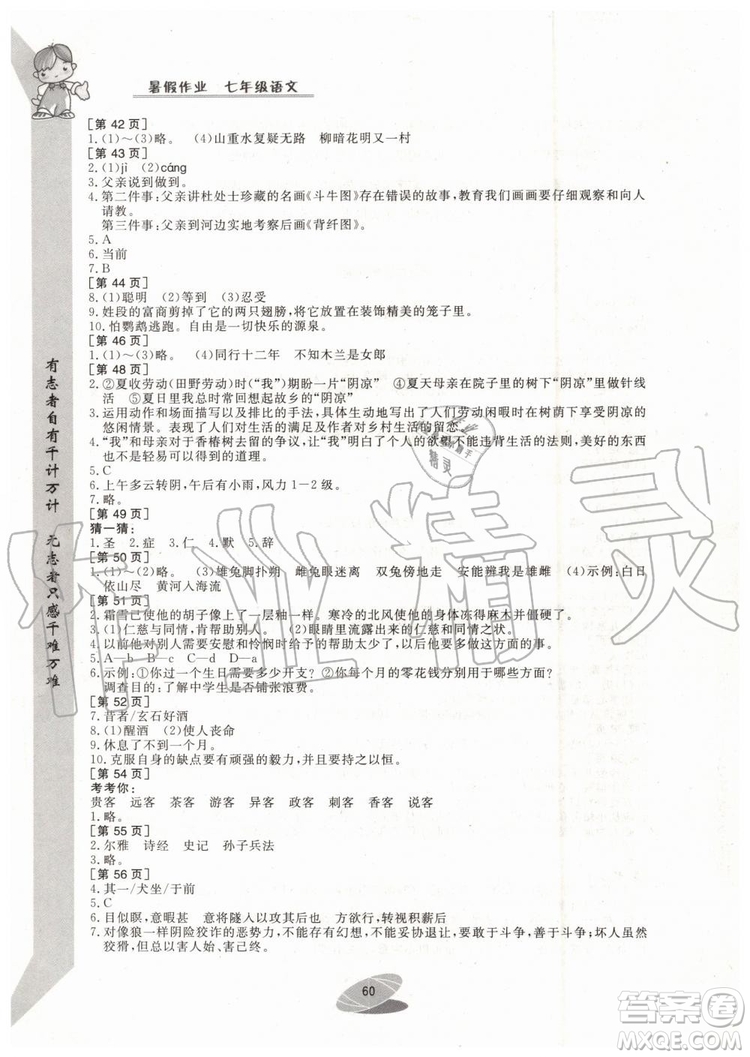 暑假作业 七年级语文
[第 42 页]
1. (1)～(3)略。 (4)山重水复疑无路 柳暗花明又一村
[第 43 页]
2. (1)jì (2)cáng
3. 父亲说到做到。
4. 第二件事:父亲讲杜处士珍藏的名画《斗牛图》存在错误的故事,教育我们画画要仔细观察和向人
请教。
第三件事:父亲到河边实地考察后画《背纤图》。
5. A
6. 当前
7. B
[第 44 页]
8. (1)聪明 (2)等到 (3)忍受
9. 姓段的富商剪掉了它的两只翅膀,将它放置在装饰精美的笼子里。
10. 怕鹦鹉逃跑。自由是一切快乐的源泉。
[第 46 页]
1. (1)～(3)略。 (4)同行十二年 不知木兰是女郎
[第 48 页]
2. ②夏收劳动(田野劳动)时“我”期盼一片“阴凉” ④夏天母亲在院子里的树下“阴凉”里做针线
活 ⑤夏日我总时常回想起故乡的“阴凉”
3. 运用动作和场面描写以及排比的手法,具体生动地表现了人们劳动闲暇时在树荫下享受阴凉的
悠闲情景。表达了作者对故乡生活的留恋。
4. “我”和母亲对于香椿树去留的争议,让“我”明白了个人的欲望不能违背生活的法则,美好的东西
也不是轻易可以得到的道理。
5. C
6. 上午多云转阴,午后有小雨,风力 1－2 级。
7. 略。
[第 49 页]
猜一猜:
1. 圣 2. 症 3. 仁 4. 默 5. 辞
[第 50 页]
1. (1)(2)略。 (3)雄兔脚扑朔 雌兔眼迷离 双兔傍地走 安能辨我是雄雌 (4)示例:白日
依山尽 黄河入海流
[第 51 页]
2. 霜雪已使他的胡子像上了一层釉一样。寒冷的北风使他的身体冻得麻木并僵硬了。
3. (1)仁慈与同情,肯帮助别人。 (2)眼睛里流露出来的仁慈与同情。
4. 以前他对别人需要安慰和怜悯时给的帮助太少了,以后他要尽力地去帮助别人。
5. A—b B—a C—d D—c
6. 示例:①你过一个生日需要多少开支? ②你每个月的零花钱分别花在哪些地方?
调查目的:了解中学生是否铺张浪费。
[第 52 页]
7. 昔者/玄石好酒
8. (1)醒酒 (2)使人丧命
9. 休息了不到一个月。
10. 克服自身的缺点要有顽强的毅力,并能长期坚持。
[第 54 页]
考考你:
贵客 远客 茶客 游客 异客 政客 刺客 香客 说客
1. 略。
[第 55 页]
2. 尔雅 诗经 史记 孙子兵法
3. 略。
[第 56 页]
4. 其一/犬坐/于前
5. C
6. 目似瞑,意暇甚 意将隧入以攻其后也 方欲行,转视积薪后
7. 对像狼一样阴险狡诈的恶势力,不能存有幻想,不能妥协退让,要敢于斗争,善于斗争;坏人虽然
狡猾,但终究是要失败的。
有志者自有千计万计 无志者只感千难万难
60
作业精灵
答案圈
MXQE.COM